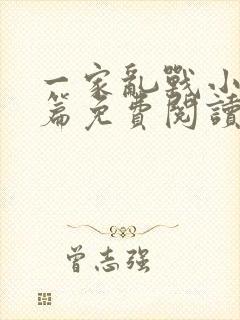 一家亂戰小
篇免費閱讀
曾志强